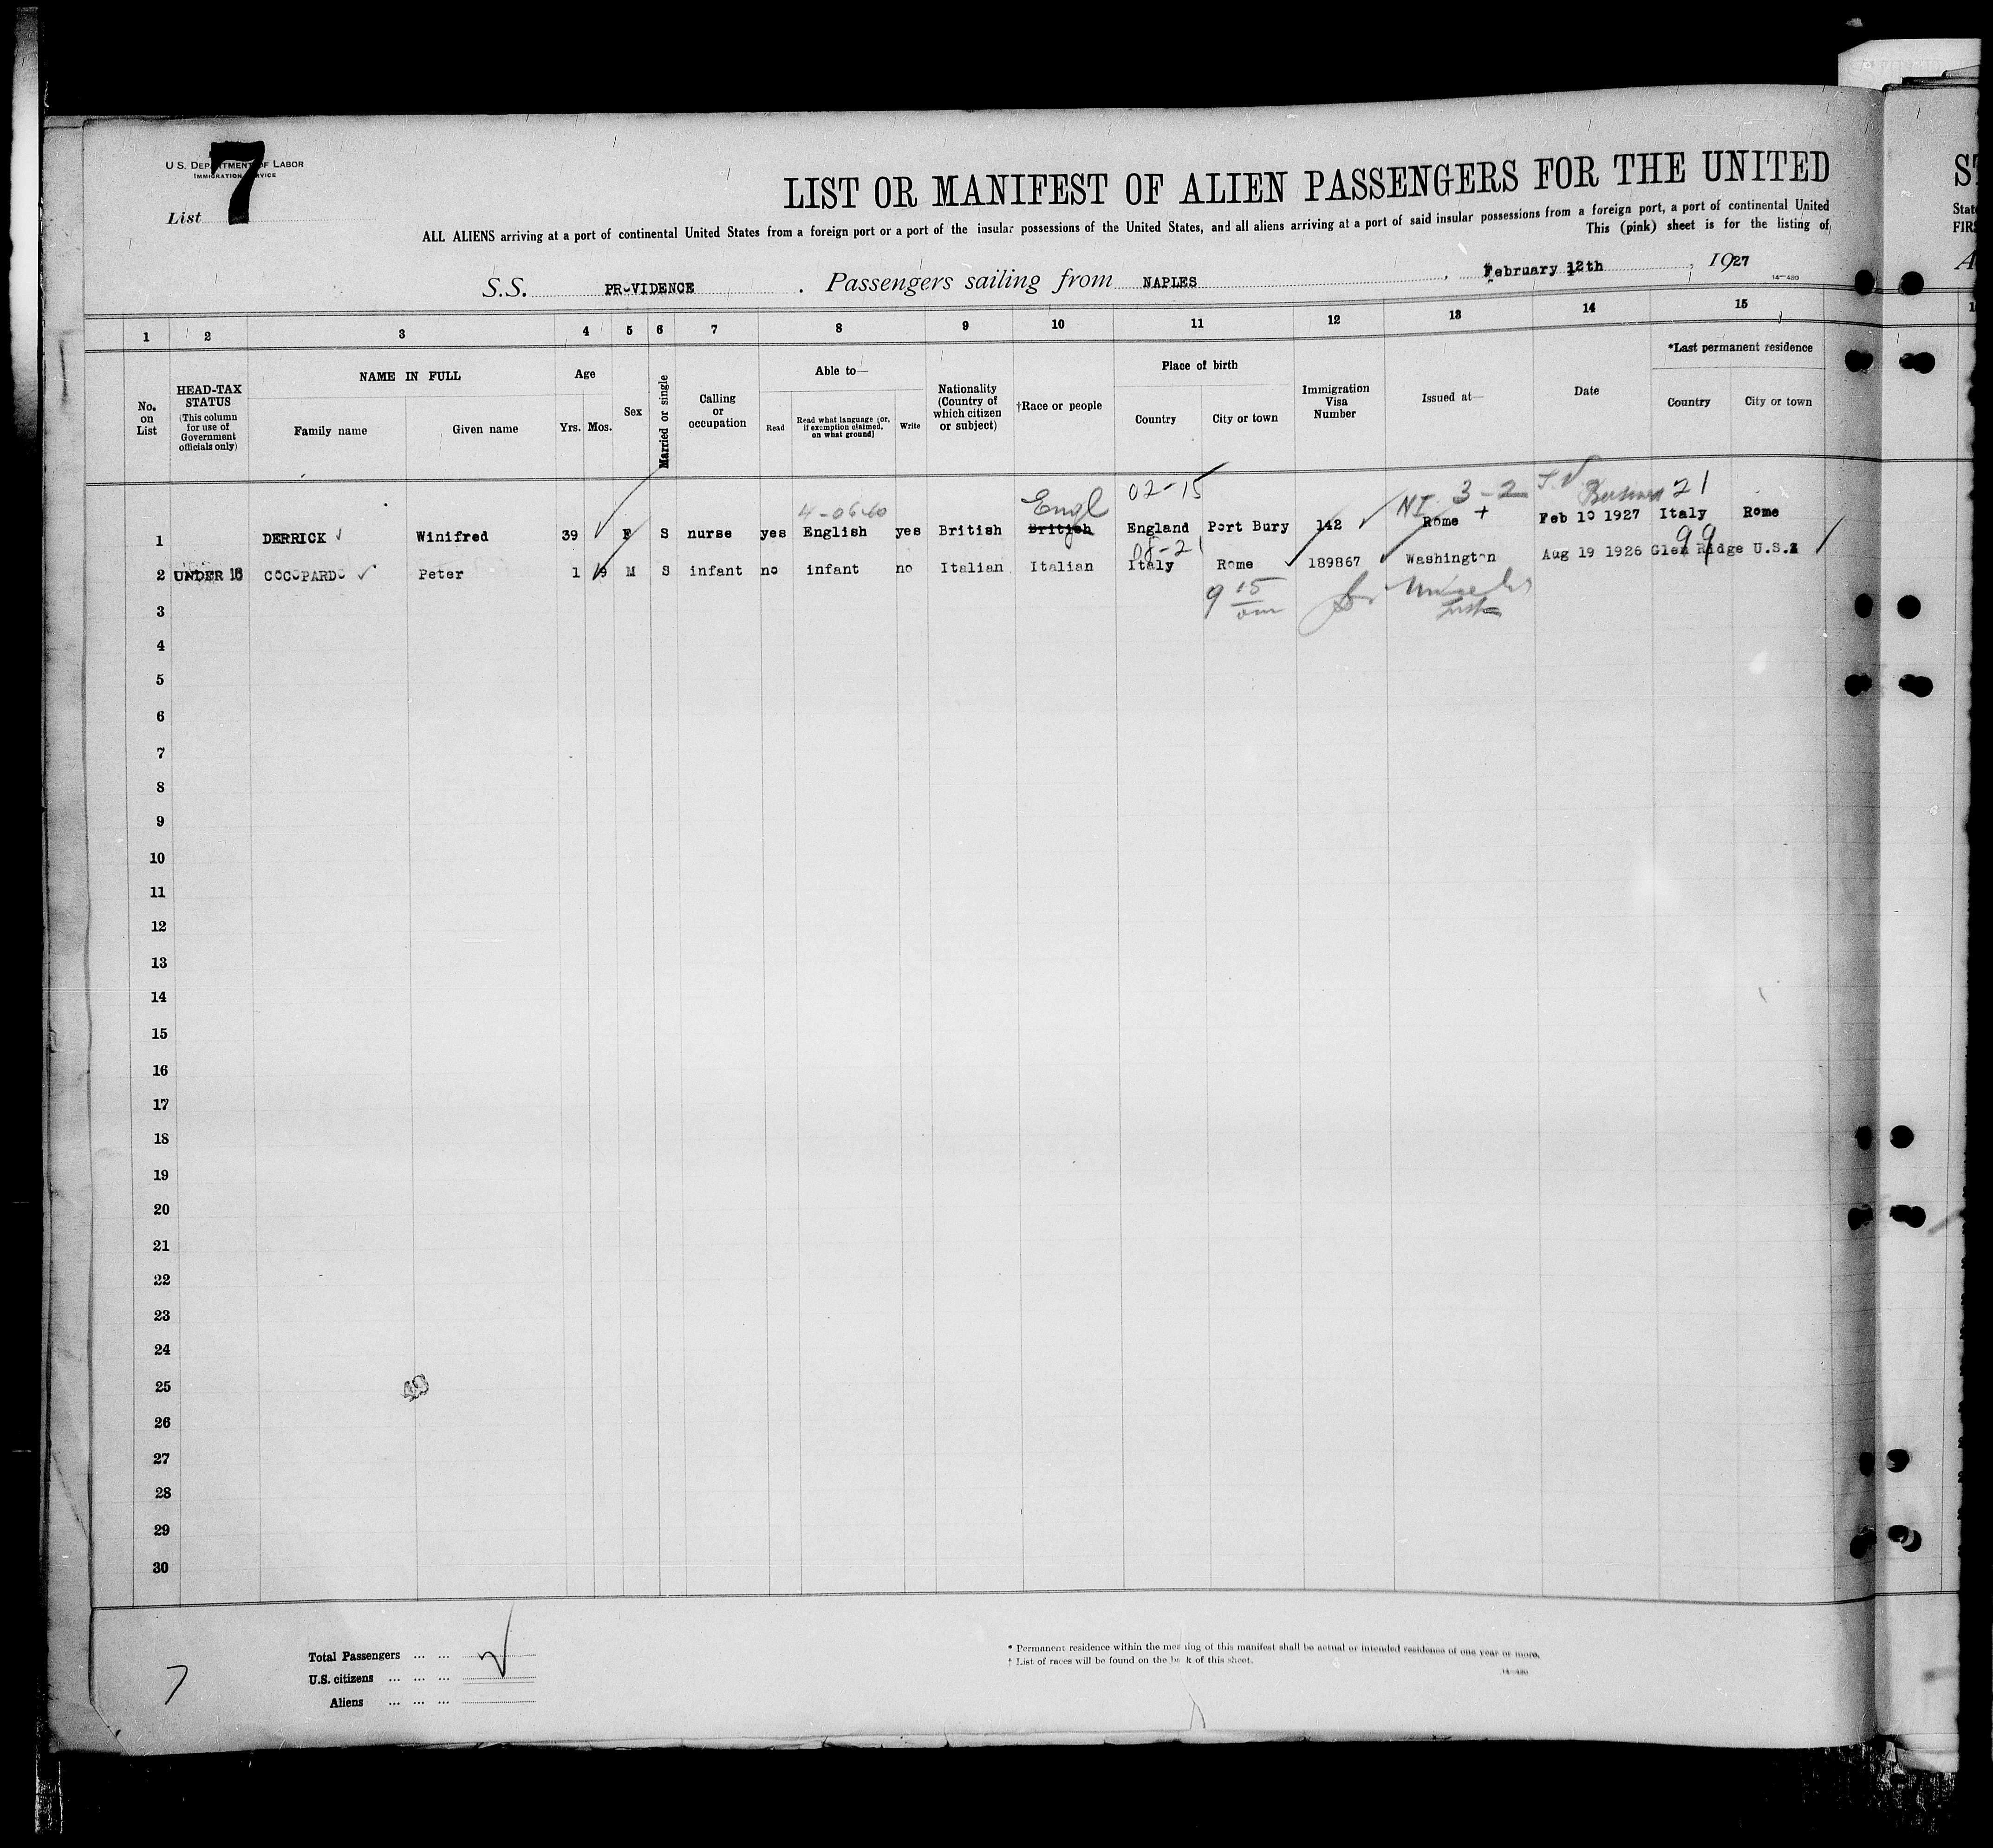 7
U.S. DEPARTMENT OF LABOR
IMMIGRATION SERVICE
List
LIST OR MANIFEST OF ALIEN PASSENGERS FOR THE UNITED
ALL ALIENS arriving at a port of continental United States from a foreign port or a port of the insular possessions of the United States, and all aliens arriving at a port of said insular possessions from a foreign port, a port of continental United
This (pink) sheet is for the listing of
S.S. PR-VIDENCE . Passengers sailing from NAPLES , February 12th , 1927
14—480
1 2 3 4 5 6 7 8 9 10 11 12 13 14 15
No. on List
HEAD-TAX STATUS (This column for use of Government officials only)
NAME IN FULL
Family name
Given name
Age
Yrs. Mos.
Sex
Married or single
Calling or occupation
Able to—
Read
Read what language (or, if exemption claimed, on what ground)
Write
Nationality (Country of which citizen or subject)
†Race or people
Place of birth
Country
City or town
Immigration Visa Number
Issued at—
Date
*Last permanent residence
Country
City or town
Engl 02-15 NI 3-2 21
1 DERRICK Winifred 39 F S nurse yes English yes British British England Port Bury 142 Rome Feb 10 1927 Italy Rome
08-21 99
2 UNDER 16 COCOPARDO Peter 1 9 M S infant no infant no Italian Italian Italy Rome 189867 Washington Aug 19 1926 Glen Ridge U.S.A
9 15
3
4
5
6
7
8
9
10
11
12
13
14
15
16
17
18
19
20
21
22
23
24
25
26
27
28
29
30
Total Passengers ... ...
U.S. citizens ... ... ...
Aliens ... ... ...
7
* Permanent residence within the meaning of this manifest shall be actual or intended residence of one year or more.
† List of races will be found on the back of this sheet.
14—480